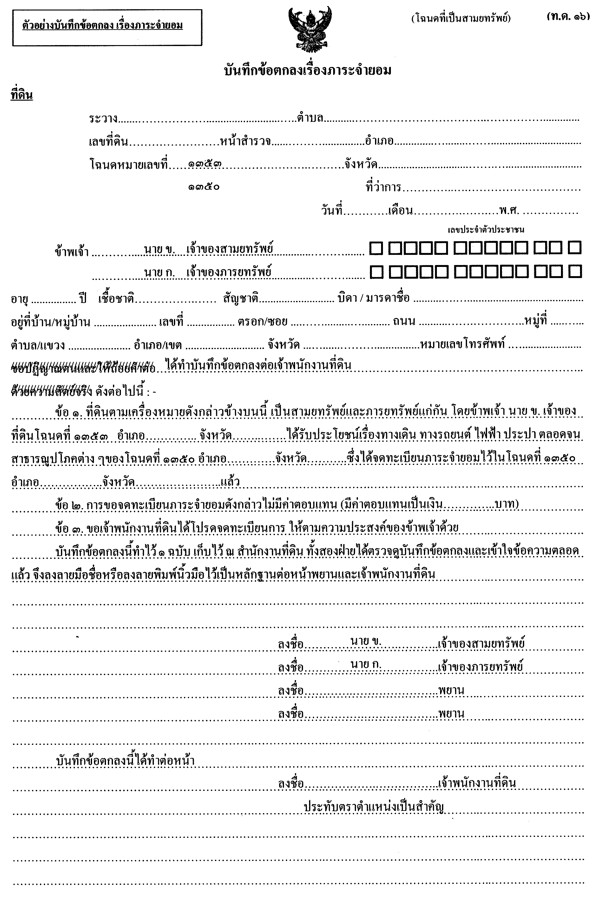 ตัวอย่างบันทึกข้อตกลง เรื่องภาระจำยอม
(โฉนดที่เป็นสามยทรัพย์) (ท.ด. ๑๖)
บันทึกข้อตกลงเรื่องภาระจำยอม
ที่ดิน
ระวาง..............................ตำบล..............................
เลขที่ดิน....................หน้าสำรวจ....................อำเภอ....................
โฉนดหมายเลขที่.....๑๓๕๓....................จังหวัด....................
๑๓๕๐ ที่ว่าการ....................
วันที่............เดือน....................พ.ศ. ...............
เลขประจำตัวประชาชน
ข้าพเจ้า ............นาย ข. เจ้าของสามยทรัพย์....................
............นาย ก. เจ้าของภารยทรัพย์....................
อายุ ................ ปี เชื้อชาติ.................... สัญชาติ.................... บิดา / มารดาชื่อ ....................
อยู่ที่บ้าน/หมู่บ้าน .................... เลขที่ ................ ตรอก/ซอย .................... ถนน ....................หมู่ที่ ..........
ตำบล/แขวง .................... อำเภอ/เขต .................... จังหวัด ....................หมายเลขโทรศัพท์ ....................
ขอปฏิญาณตนและให้ถ้อยคำต่อ ได้ทำบันทึกข้อตกลงต่อเจ้าพนักงานที่ดิน
ด้วยความสัตย์จริง ดังต่อไปนี้ : -
ข้อ ๑. ที่ดินตามเครื่องหมายดังกล่าวข้างบนนี้ เป็นสามยทรัพย์และภารยทรัพย์แก่กัน โดยข้าพเจ้า นาย ข. เจ้าของ
ที่ดินโฉนดที่ ๑๓๕๓ อำเภอ............... จังหวัด...............ได้รับประโยชน์เรื่องทางเดิน ทางรถยนต์ ไฟฟ้า ประปา ตลอดจน
สาธารณูปโภคต่าง ๆของโฉนดที่ ๑๓๕๐ อำเภอ...............จังหวัด...............ซึ่งได้จดทะเบียนภาระจำยอมไว้ในโฉนดที่ ๑๓๕๐
อำเภอ....................จังหวัด....................แล้ว
ข้อ ๒. การขอจดทะเบียนภาระจำยอมดังกล่าวไม่มีค่าตอบแทน (มีค่าตอบแทนเป็นเงิน...............บาท)
ข้อ ๓. ขอเจ้าพนักงานที่ดินได้โปรดจดทะเบียนการ ให้ตามความประสงค์ของข้าพเจ้าด้วย
บันทึกข้อตกลงนี้ทำไว้ ๑ ฉบับ เก็บไว้ ณ สำนักงานที่ดิน ทั้งสองฝ่ายได้ตรวจดูบันทึกข้อตกลงและเข้าใจข้อความตลอด
แล้ว จึงลงลายมือชื่อหรือลงลายพิมพ์นิ้วมือไว้เป็นหลักฐานต่อหน้าพยานและเจ้าพนักงานที่ดิน
ลงชื่อ............นาย ข.....................เจ้าของสามยทรัพย์
ลงชื่อ............นาย ก.....................เจ้าของภารยทรัพย์
ลงชื่อ..............................พยาน
ลงชื่อ..............................พยาน
บันทึกข้อตกลงนี้ได้ทำต่อหน้า
ลงชื่อ..............................เจ้าพนักงานที่ดิน
ประทับตราตำแหน่งเป็นสำคัญ